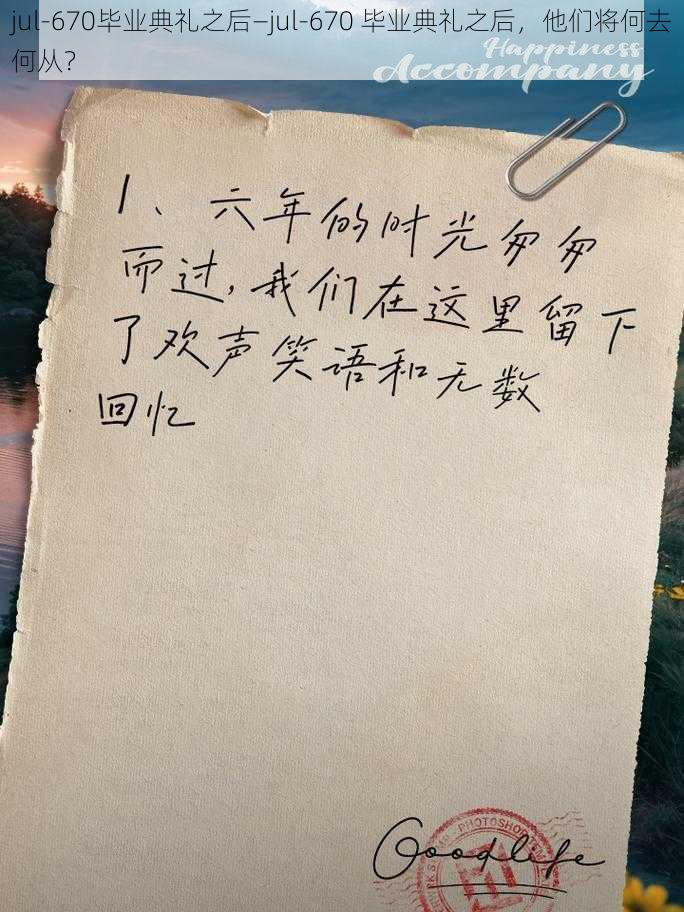 jul-670毕业典礼之后—jul-670 毕业典礼之后，他们将何去
何从？
Happiness
Accompany
1、六年的时光匆匆
而过,我们在这里留下
了欢声笑语和无数
回忆
PHOTOSHOP
Goodlife